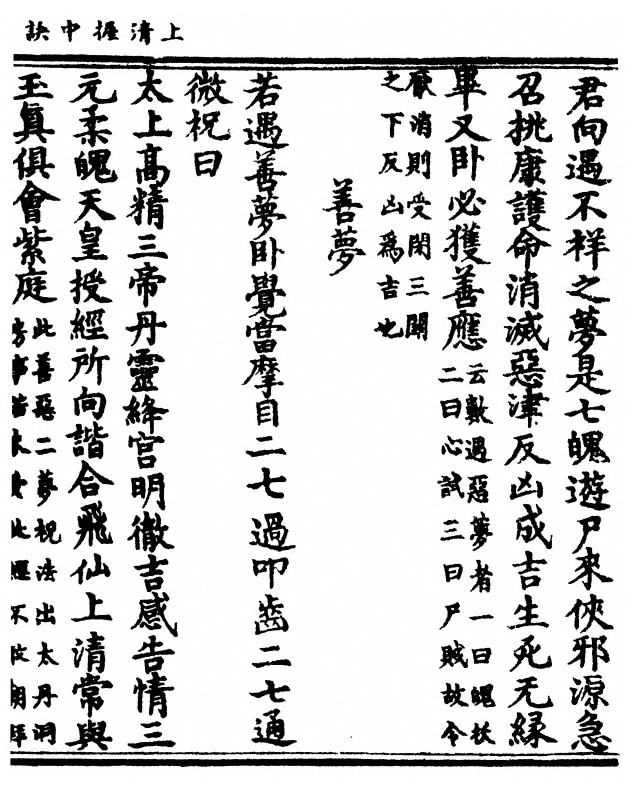 上清握中訣
君向遇不祥之夢是七魄遊尸來俠邪源急
召挑康護命消滅惡津反凶成吉生死无緣
畢又卧必獲善應云數遇惡夢者一曰魄妖
二曰心試三曰尸賊故令
厭消則受閉三關
之下反凶爲吉也
善夢
若遇善夢卧覺當摩目二七過叩齒二七通
微祝曰
太上高精三帝丹靈絳宮明徹吉感告情三
元柔魄天皇授經所向諧合飛仙上清常與
玉眞俱會紫庭此善惡二夢祝法出太丹洞